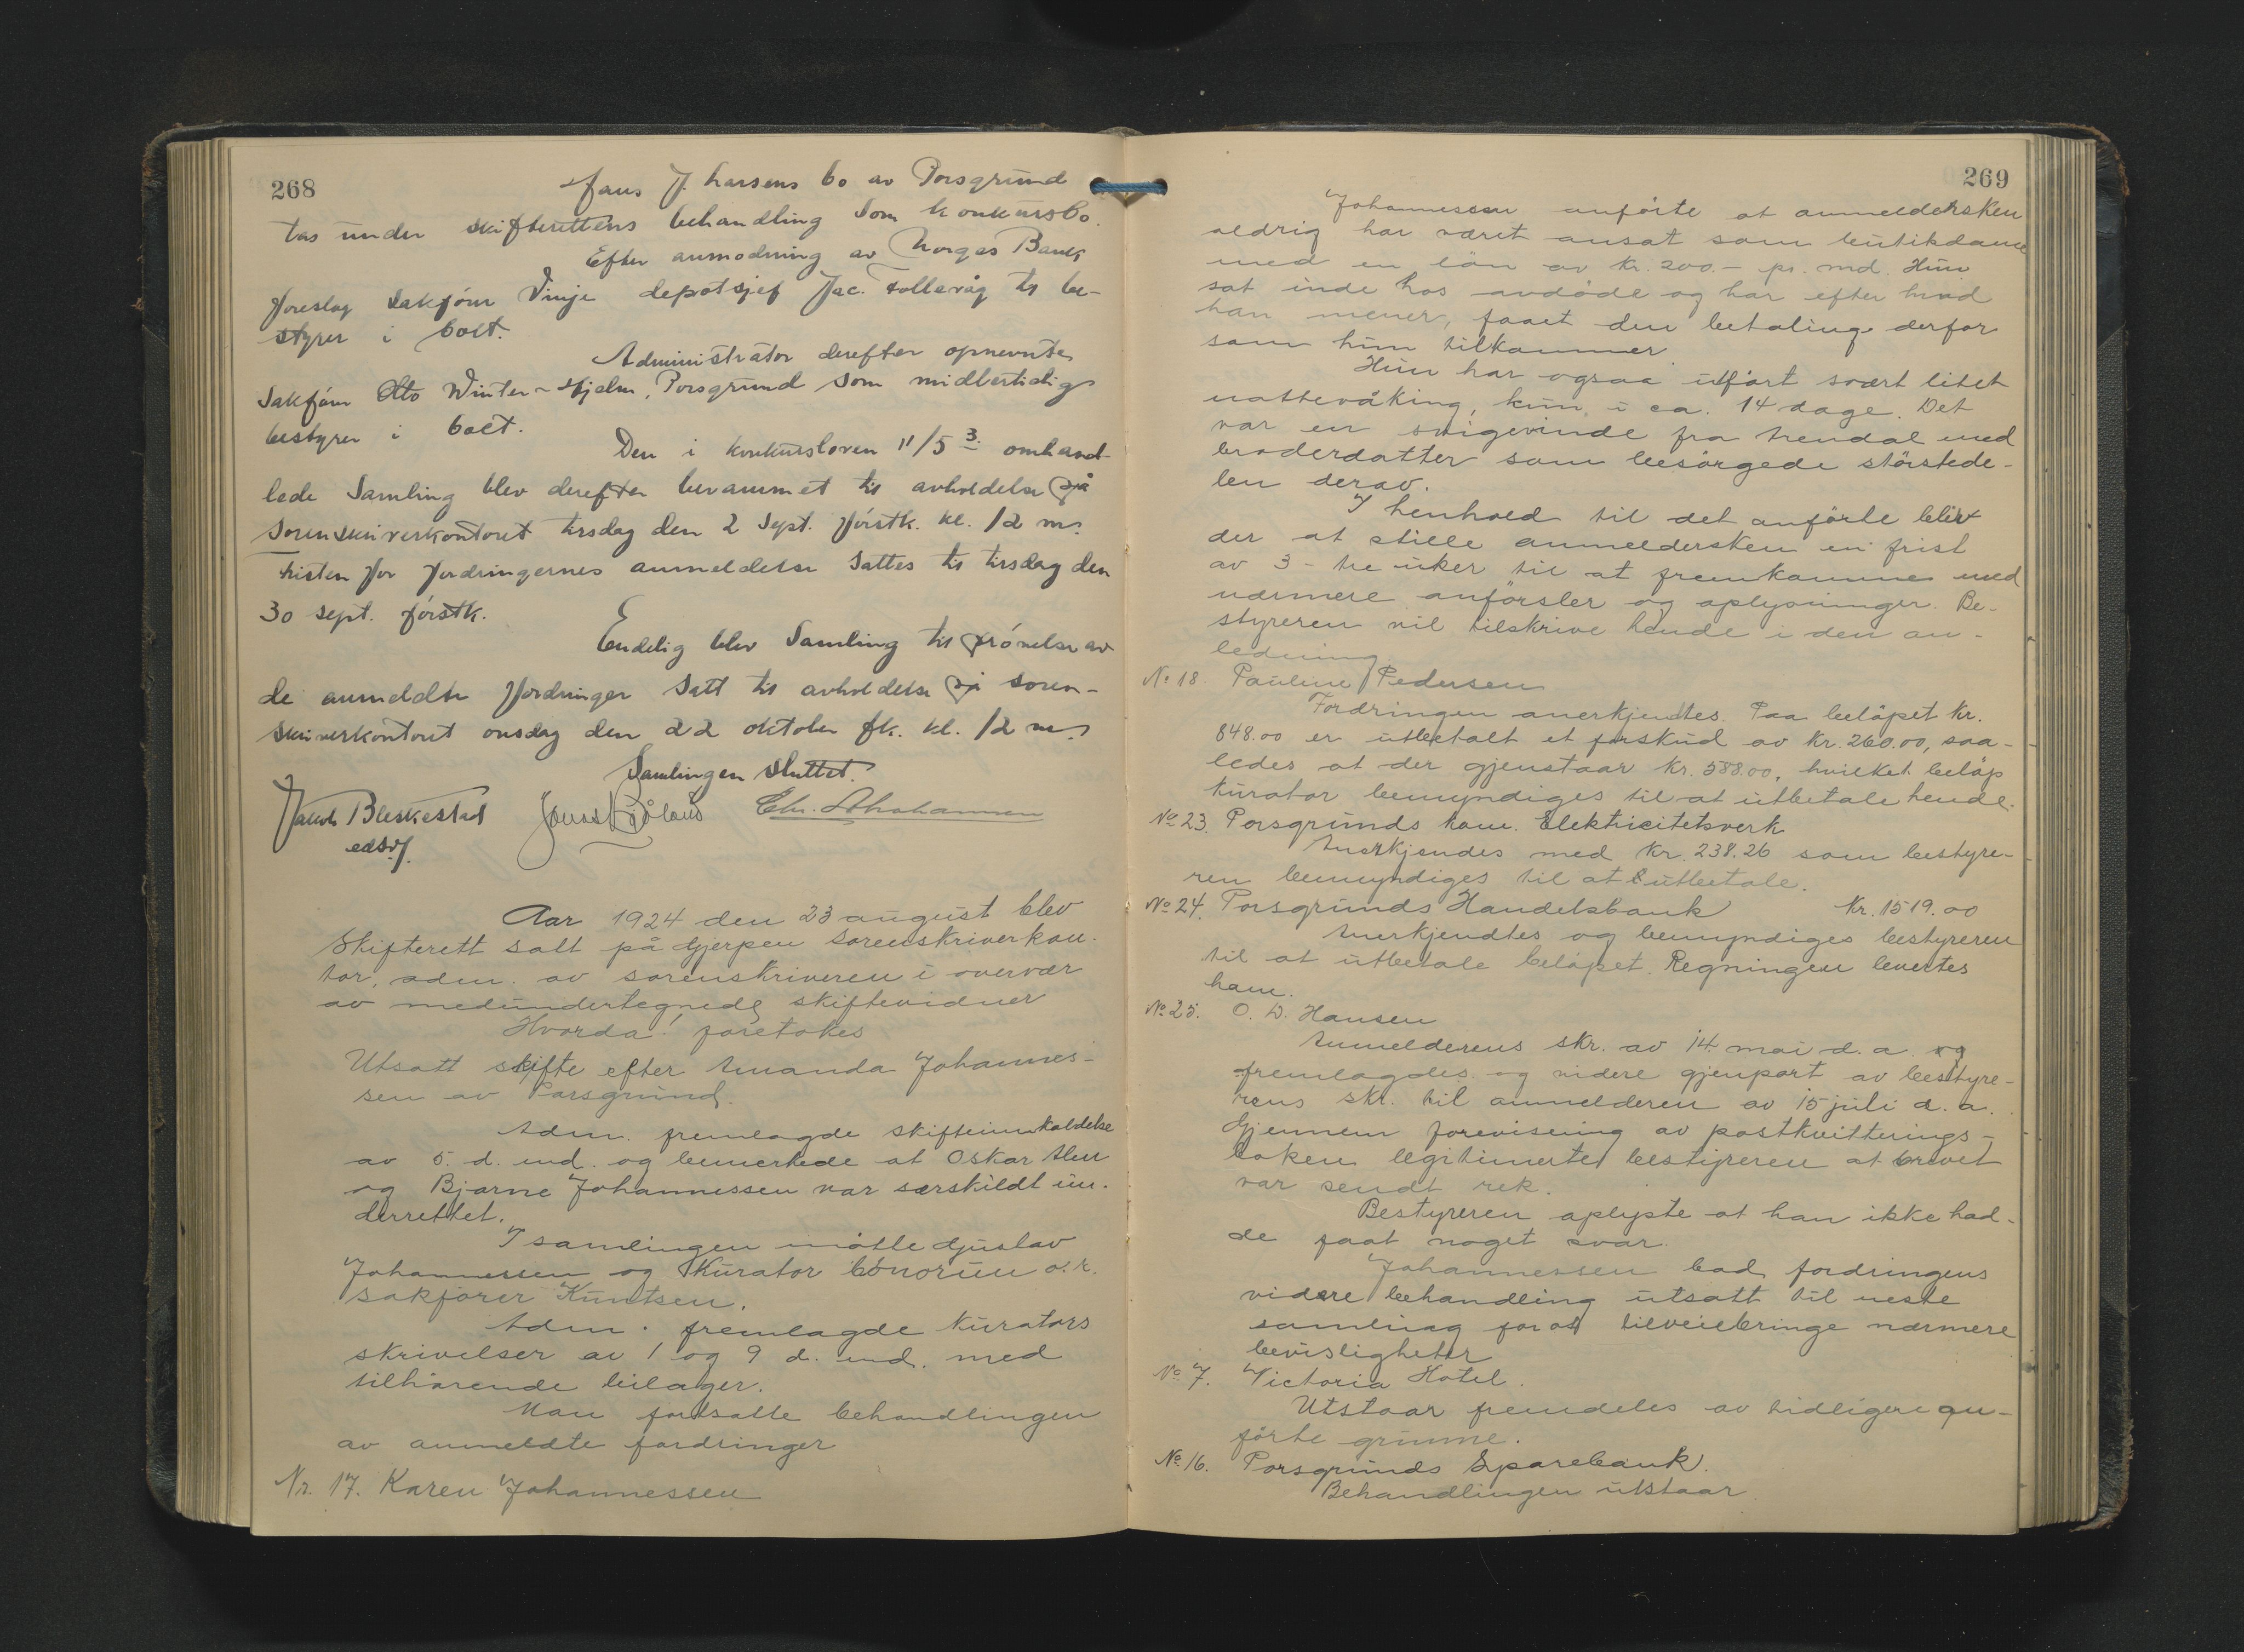 268
Hans J. Larsens bo av Porsgrund
tas under skifterettens behandling som konkursbo.
Efter anmodning av Norges Bank
foreslog sakfører Vinje depotsjef Jac. Follaråg til be-
styrer i boet.
Administrator derefter opnevnte
Sakføm Otto Winter-Hjelm, Porsgrund som midlertidig
bestyrer i boet.
Den i konkursloven 11/5 3. omhand-
lede Samling blev derefter berammet til avholdelse på
sorenskriverkontoret tirsdag den 2 Sept. førstk. kl. 12 m.
Fristen for fordringernes anmeldelse sattes til tirsdag den
30 sept. førstk.
Endelig blev Samling til prøvelse av
de anmeldte fordringer satt til avholdelse på soren-
skriverkontoret onsdag den 22 oktober fk. kl. 12 m.
Samlingen sluttet.
Jakob Bleskestad Chr. Abrahamsen
edsv.f.
Aar 1924 den 23 august blev
Skifterett satt på Gjerpen sorenskriverkon-
tor, adm. av sorenskriveren i overvær
av medundertegnede skiftevidner
Hvorda! foretokes
Utsatt skifte efter Amanda Johannes-
sen av Porsgrund.
Adm. fremlagde skifteinnkaldelse
av 5. d. md. og bemerkede at Oskar Alm
og Bjarne Johannessen var særskildt un-
derrettet.
I samlingen møtte Gjustav
Johannessen og Kurator bonorum o.r.
sakfører Kuntsen.
Adm. fremlagde kurators
skrivelser av 1 og 9 d. md. med
tilhørende bilager.
Man fortsatte behandlingen
av anmeldte fordringer
Nr. 17. Karen Johannessen
269
Johannessen anførte at anmeldersken
aldrig har været ansat som butikdame
med en løn av kr. 200.- pr. md. Hun
sat inde hos avdøde og har efter hvad
han mener, faaet den betaling derfor
som hun tilkommer
Hun har ogsaa utført svært litet
nattevåking, kun i ca. 14 dage. Det
var en svigerinde fra Arendal med
broderdatter som besørgede størstede-
len derav.
I henhold til det anførte blir
der at stille anmeldersken en frist
av 3 - tre uker til at fremkomme med
nærmere anførsler og oplysninger. Be-
styreren vil tilskrive hende i den an-
ledning
No 18. Pauline Pedersen
Fordringen anerkjendtes. Paa beløpet kr.
848.00 er utbetalt et forskud av kr. 260.00, saa-
ledes at der gjenstaar kr. 588.00, hvilket beløp
kurator bemyndiges til at utbetale hende.
No 23. Porsgrunds kom. Elektricitetsverk
Anerkjendes med kr. 238.26 som bestyre-
ren bemyndiges til at utbetale.
No 24. Porsgrunds Handelsbank kr. 1519.00
Anerkjendtes og bemyndiges bestyreren
til at utbetale beløpet. Regningen levertes
ham.
No 25. O. D. Hansen
Anmelderens skr. av 14. mai d.a. og
fremlagdes og videre gjenpart av bestyre-
rens skr. til anmelderen av 15 juli d.a.
Gjennem forevisning av postkvitterings-
boken legitimerte bestyreren at brevet
var sendt rek.
Bestyreren oplyste at han ikke had-
de faat noget svar.
Johannessen bad fordringens
videre behandling utsatt til neste
samling for at tilveiebringe nærmere
bevisligheter
No 7. Victoria Hotel.
Utstaar fremdeles av tidligere an-
førte grunne.
No 16. Porsgrunds Sparebank.
Behandlingen utstaar